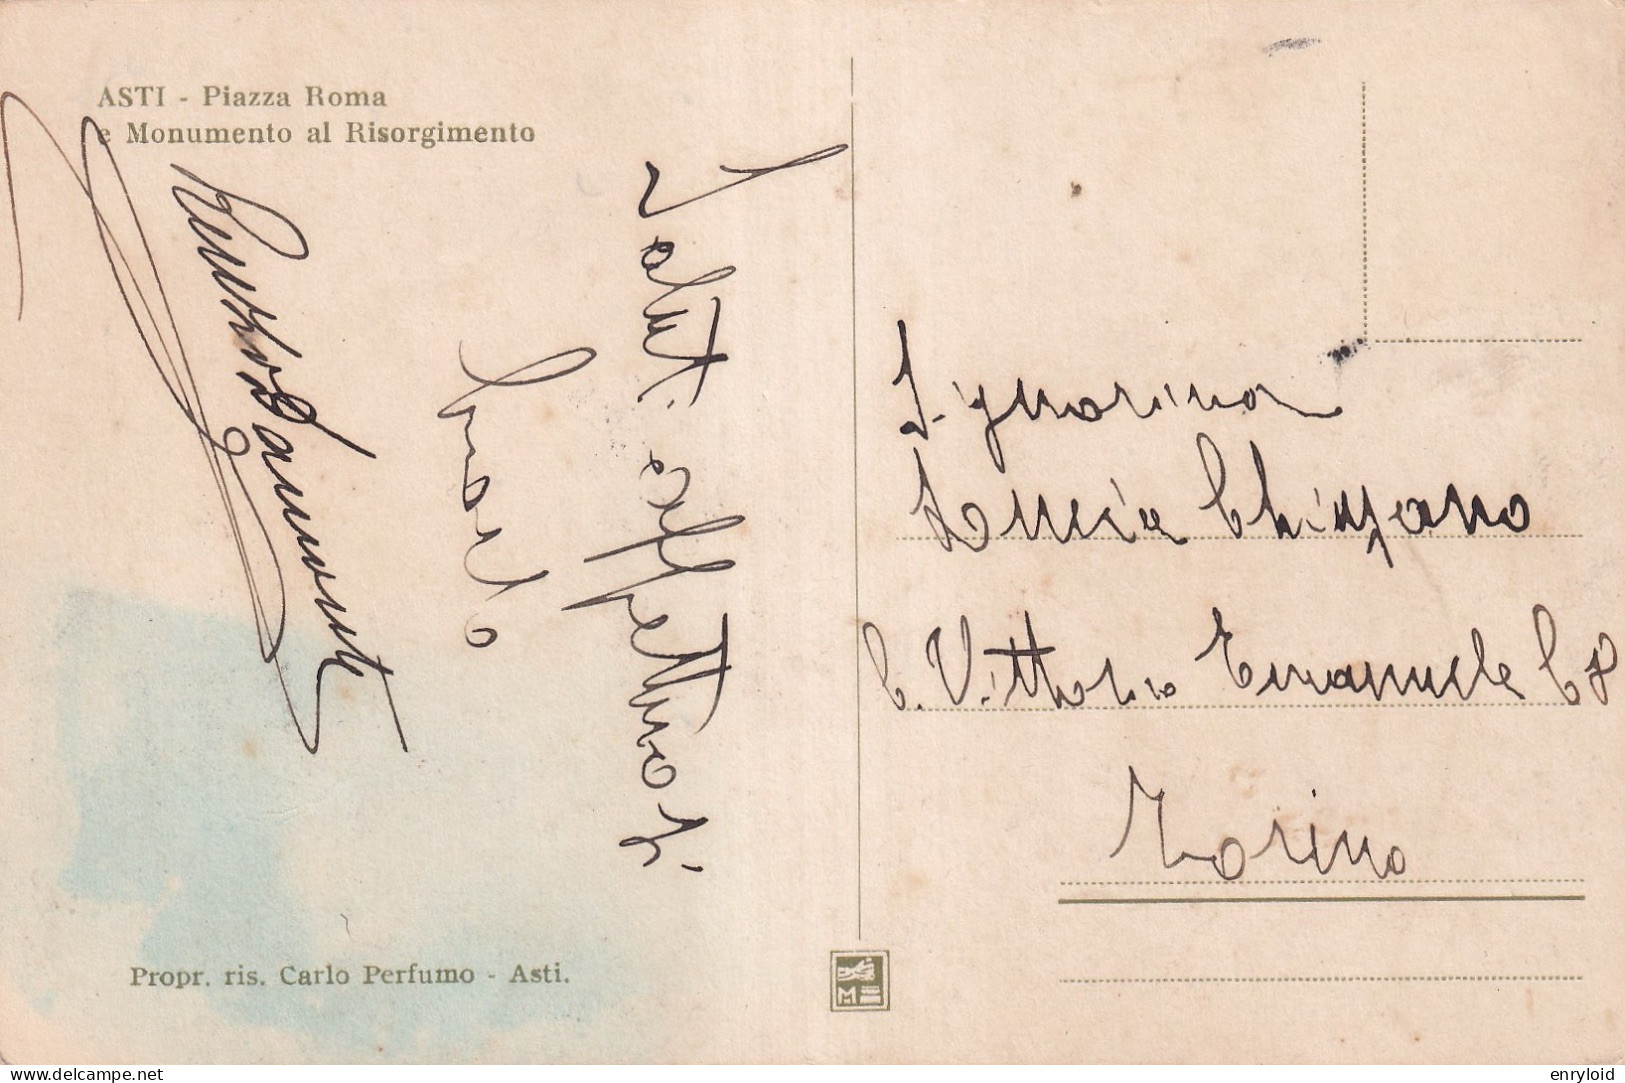 ASTI - Piazza Roma
e Monumento al Risorgimento
Saluti affettuosi
Signorina
Lucia
C. Vittorio Emanuele 68
Torino
Propr. ris. Carlo Perfumo - Asti.
M
enryloid
delcampe.net